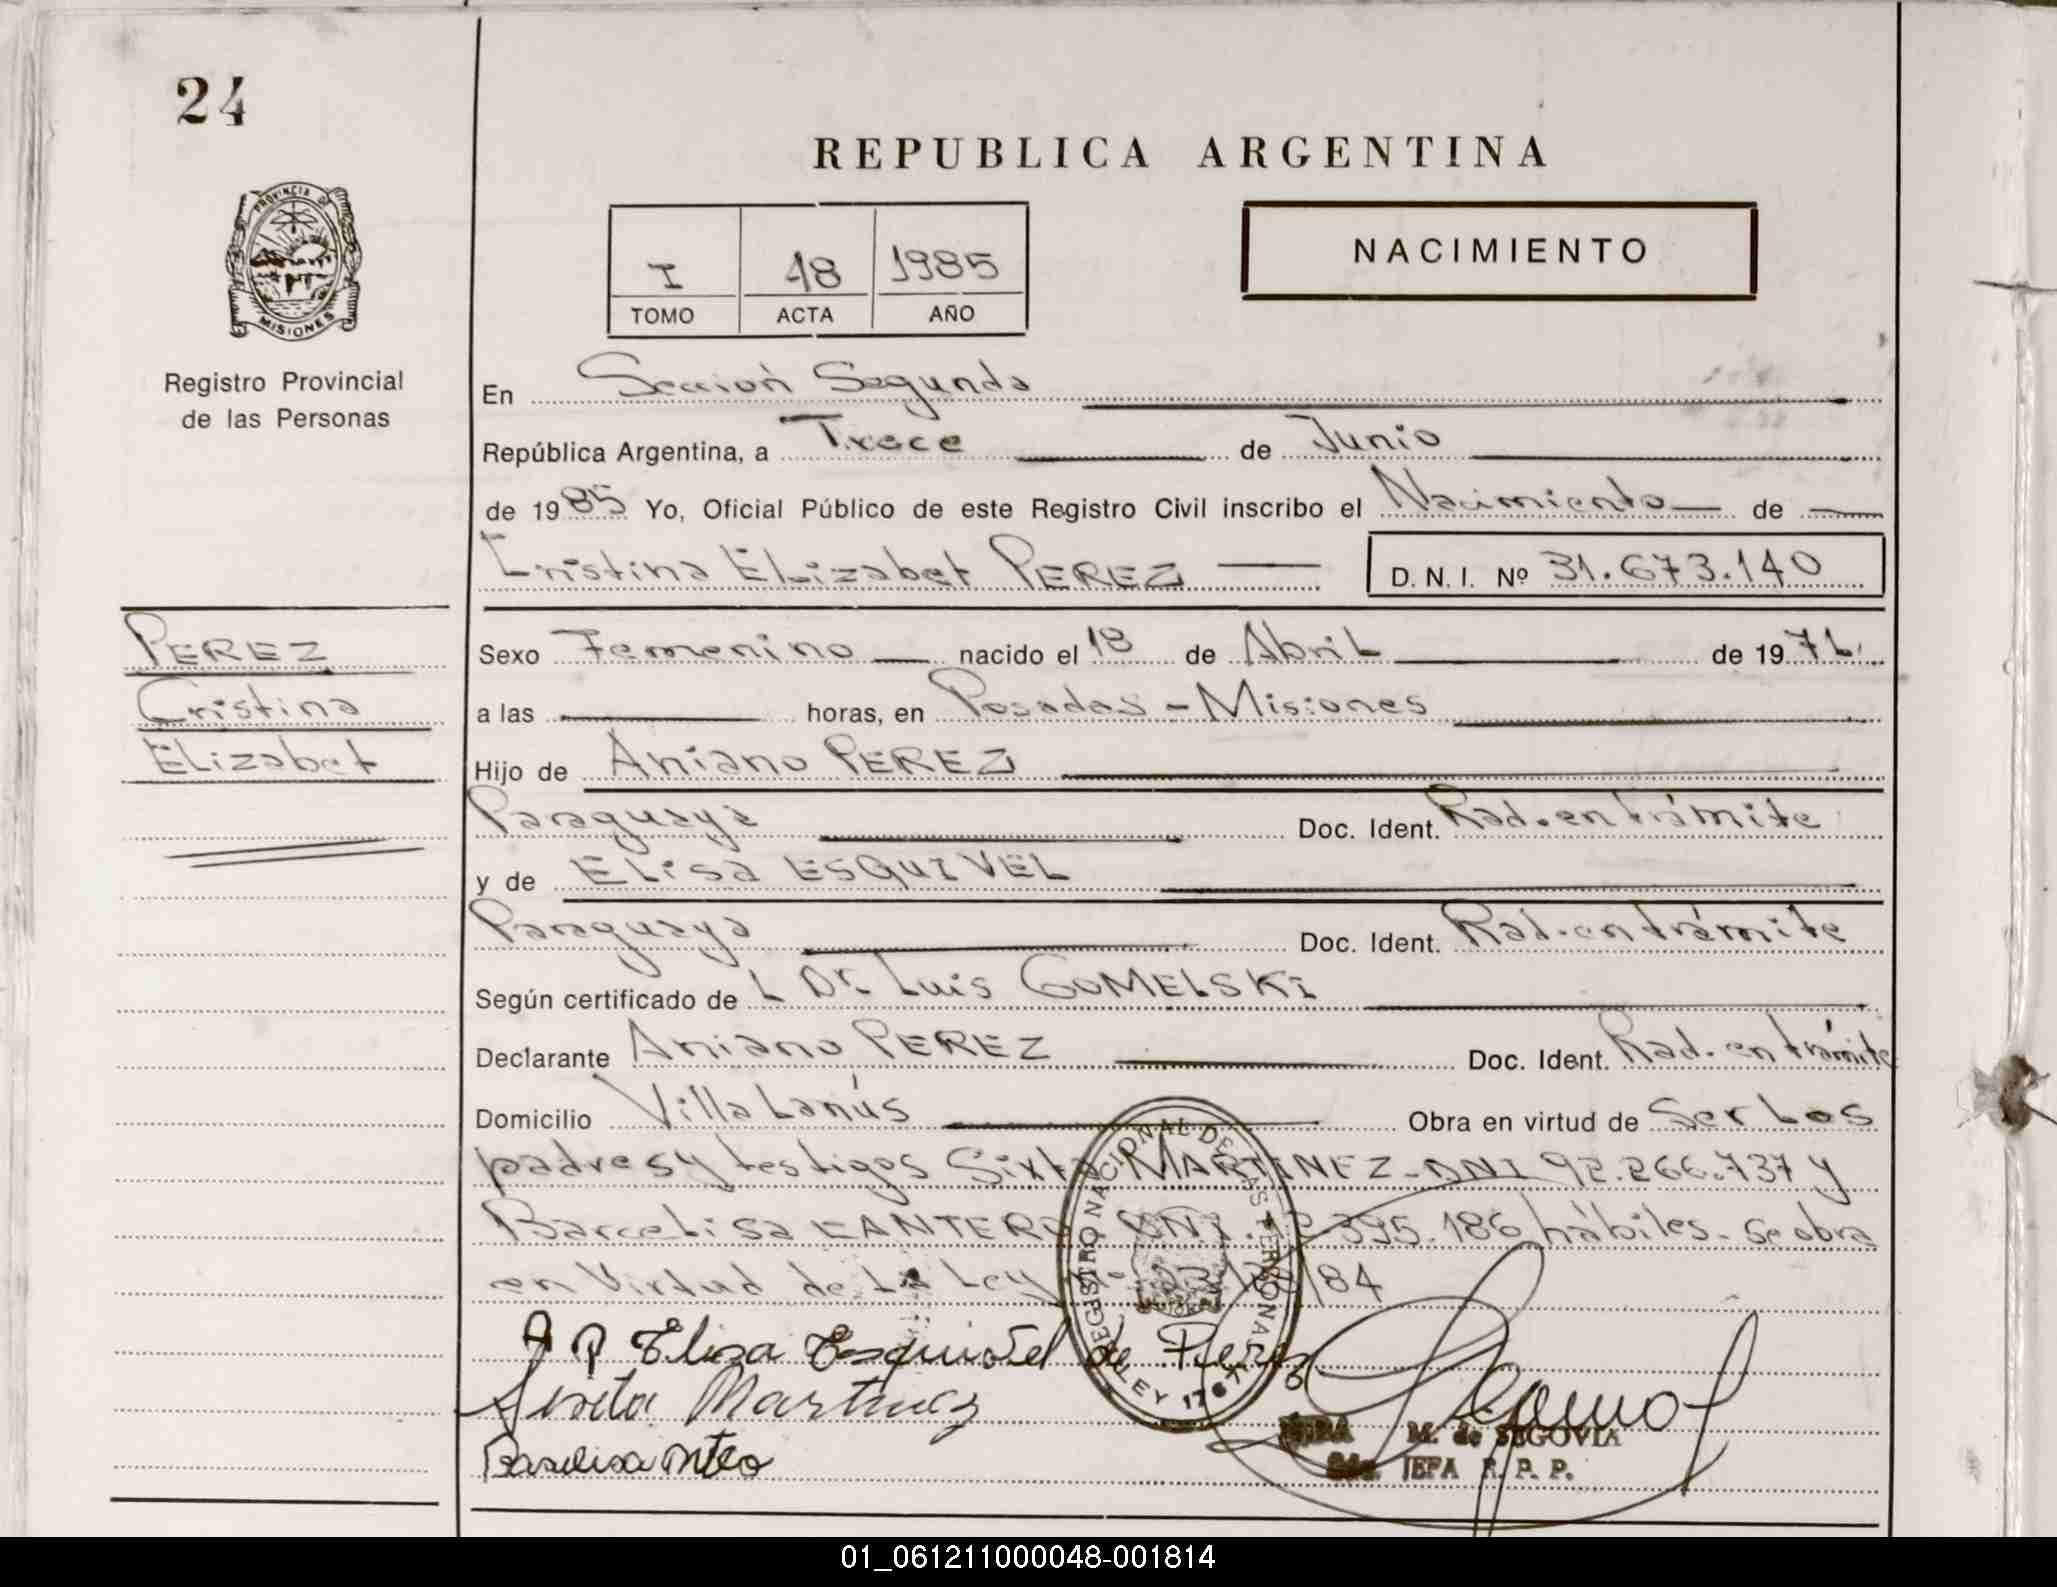 24
REPUBLICA ARGENTINA
PROVINCIA DE
MISIONES
Registro Provincial
de las Personas
I 48 1985
TOMO ACTA AÑO
NACIMIENTO
En Sección Segunda
República Argentina, a Trece de Junio
de 1985 Yo, Oficial Público de este Registro Civil inscribo el Nacimiento de
Cristina Elizabet PEREZ D. N. I. Nº 31.673.140
PEREZ
Cristina
Elizabet
Sexo Femenino nacido el 18 de Abril de 197
a las horas, en Posadas - Misiones
Hijo de Aniano PEREZ
Paraguaya Doc. Ident. Rad. en trámite
y de Elisa ESQUIVEL
Paraguaya Doc. Ident. Rad. en trámite
Según certificado de L Dr. Luis GOMELSKI
Declarante Aniano PEREZ Doc. Ident. Rad. en trámite
Domicilio Villa Lanús Obra en virtud de Ser Los
padres y testigos Sixta MARTINEZ - DNI 92.266.737 y
CANTERO DNI. 395.186 hábiles. Se obra
en Virtud de La Ley /84
REGISTRO NACIONAL DE LAS PERSONAS
LEY 17671
Elisa Esquivel de Perez
Sixta Martinez
M. de SEGOVIA
JEFA R. P. P.
01_061211000048-001814